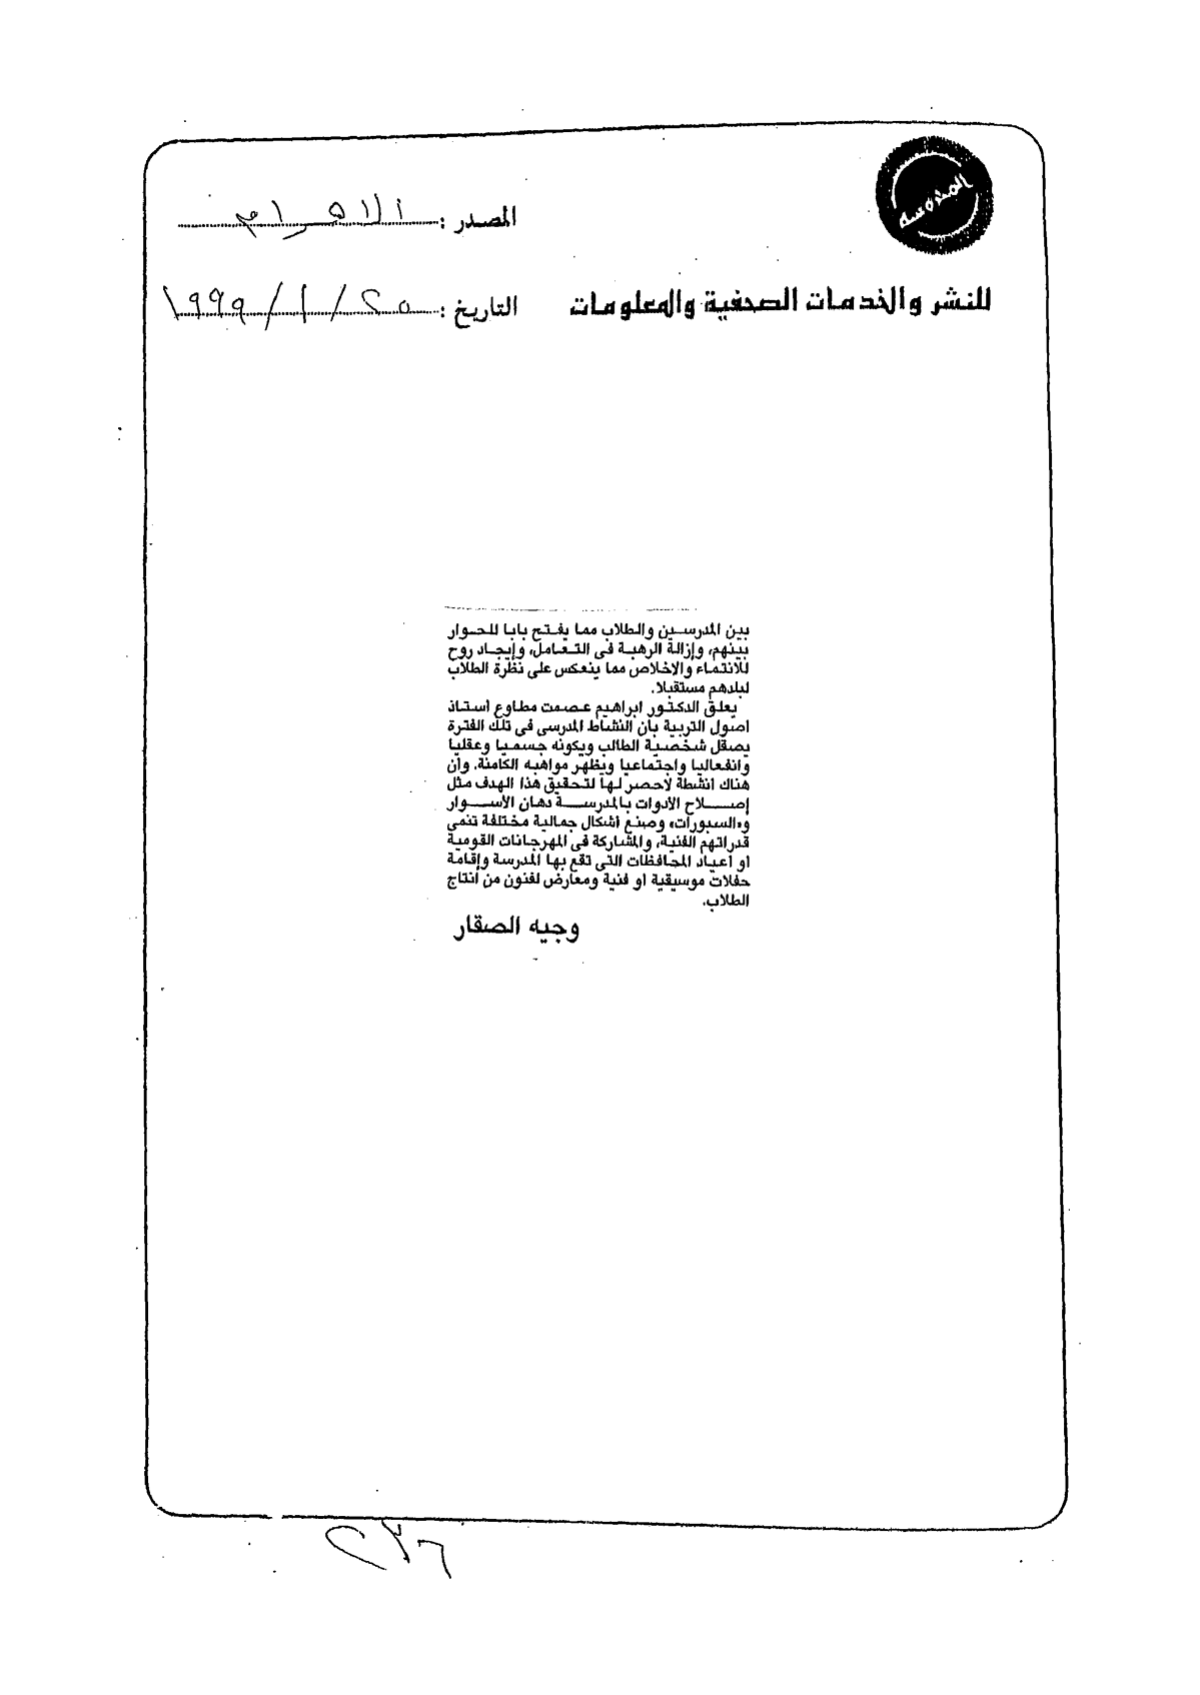 المصدر : الاهرام
للنشر والخدمات الصحفية والمعلومات
التاريخ : ٢٥ / ١ / ١٩٩٩
بين المدرسين والطلاب مما يفتح بابا للحوار
بينهم، وإزالة الرهبة فى التعامل، وإيجاد روح
للانتماء والإخلاص مما ينعكس على نظرة الطلاب
لبلدهم مستقبلا.
يعلق الدكتور ابراهيم عصمت مطاوع أستاذ
اصول التربية بأن النشاط المدرسى فى تلك الفترة
يصقل شخصية الطالب ويكونه جسميا وعقليا
وانفعاليا واجتماعيا ويظهر مواهبه الكامنة، وأن
هناك انشطة لاحصر لها لتحقيق هذا الهدف مثل
إصلاح الأدوات بالمدرسة دهان الأسوار
و«السبورات» وصنع أشكال جمالية مختلفة تنمى
قدراتهم الفنية، والمشاركة فى المهرجانات القومية
او أعياد المحافظات التى تقع بها المدرسة وإقامة
حفلات موسيقية او فنية ومعارض لفنون من انتاج
الطلاب.
وجيه الصقار
٢٣٦